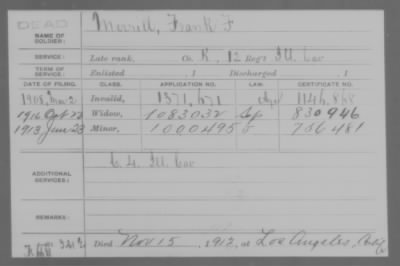 DEAD
NAME OF SOLDIER: Morrill, Frank F
SERVICE: Late rank, Co. K, 12 Reg't Ill Cav
TERM OF SERVICE: Enlisted , 1 Discharged , 1
DATE OF FILING. CLASS. APPLICATION NO. LAW. CERTIFICATE NO.
1908, Mar 2 Invalid, 1371,671 1146,868
1916 Oct 23 Widow, 1083032 830946
1913 Jun 23 Minor, 1000495 756481
ADDITIONAL SERVICES: C. 4. Ill. Cav
REMARKS:
Died Nov 15, 1912, at Los Angeles, Calif